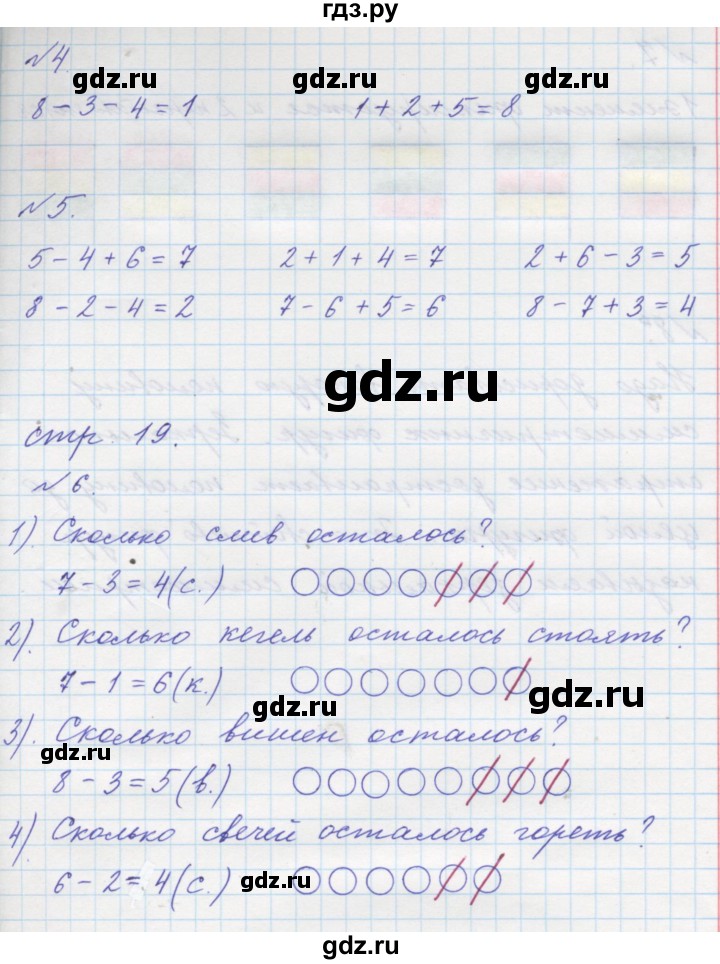 гдз.ру
№4.
gdz.ru gdz.ru
8 - 3 - 4 = 1 1 + 2 + 5 = 8
№5.
gdz.ru gdz.ru
5 - 4 + 6 = 7 2 + 1 + 4 = 7 2 + 6 - 3 = 5
8 - 2 - 4 = 2 7 - 6 + 5 = 6 8 - 7 + 3 = 4
gdz.ru
стр. 19.
№6.
gdz.ru gdz.ru
1). Сколько слив осталось?
7 - 3 = 4 (с.)
2). Сколько кегель осталось стоять?
7 - 1 = 6 (к.)
gdz.ru gdz.ru
3). Сколько вишен осталось?
gdz.ru
8 - 3 = 5 (в.)
4) Сколько свечей осталось гореть?
6 - 2 = 4 (с.)
gdz.ru
gdz.ru